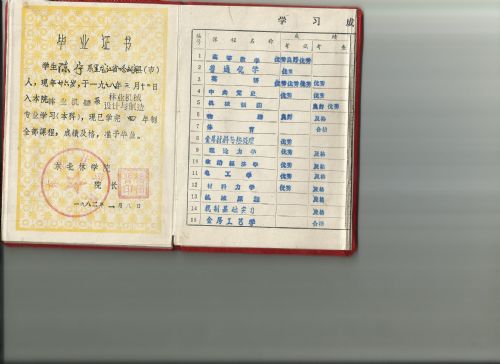 毕业证书
学生陈宇系黑龙江省哈尔滨(市)
人,现年廿六岁,于一九七八年三月十日
入本院林业机械系林业机械设计与制造
专业学习(本科),现已学完四年制
全部课程,成绩及格,准予毕业。
东北林学院
院长
一九八二年一月八日
学习成
编号 课程名称 成绩
考试 考查
1 高等数学 优秀良好优秀
2 普通化学 优秀
3 英语 优秀优秀优秀
4 中共党史 优秀
5 机械制图 良好 优秀
6 物理 良好 及格
7 体育 合格
8 金属材料与热处理 优秀
9 理论力学 优秀 及格
10 政治经济学 优秀
11 电工学 优秀 及格
12 材料力学 优秀 及格
13 机械原理 及格
14 机制基础实习 优秀
15 金属工艺学 合格